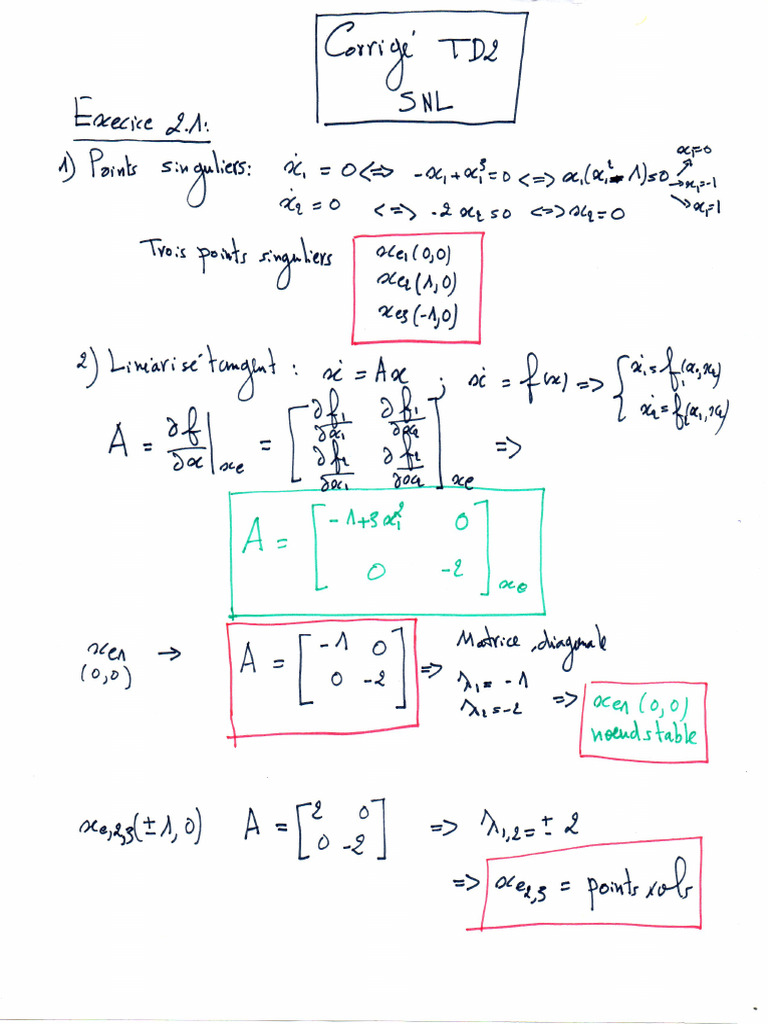 Corrigé TD2
SNL
Execice 2.1:
1) Points singuliers: ẋ₁ = 0 <=> -x₁+x₁³=0 <=> x₁(x₁²-1)=0 → x₁=0 → x₁=-1 → x₁=1
ẋ₂ = 0 <=> -2x₂=0 <=> x₂=0
Trois points singuliers
xe1(0,0)
xe2(1,0)
xe3(-1,0)
2) Linéarisé tangent : ẋ = Ax ; ẋ = f(x) => { ẋ₁=f₁(x₁,x₂)
ẋ₂=f₂(x₁,x₂)
A = ∂f/∂x |xe = [ ∂f₁/∂x₁ ∂f₁/∂x₂
∂f₂/∂x₁ ∂f₂/∂x₂ ]xe =>
A = [ -1+3x₁² 0
0 -2 ]xe
xe1 → A = [ -1 0
(0,0) 0 -2 ] => Matrice diagonale
λ₁ = -1
λ₂=-2 => xe1 (0,0)
noeud stable
xe,2,3(±1,0) A = [ 2 0
0 -2 ] => λ1,2 = ± 2
=> xe2,3 = points cols